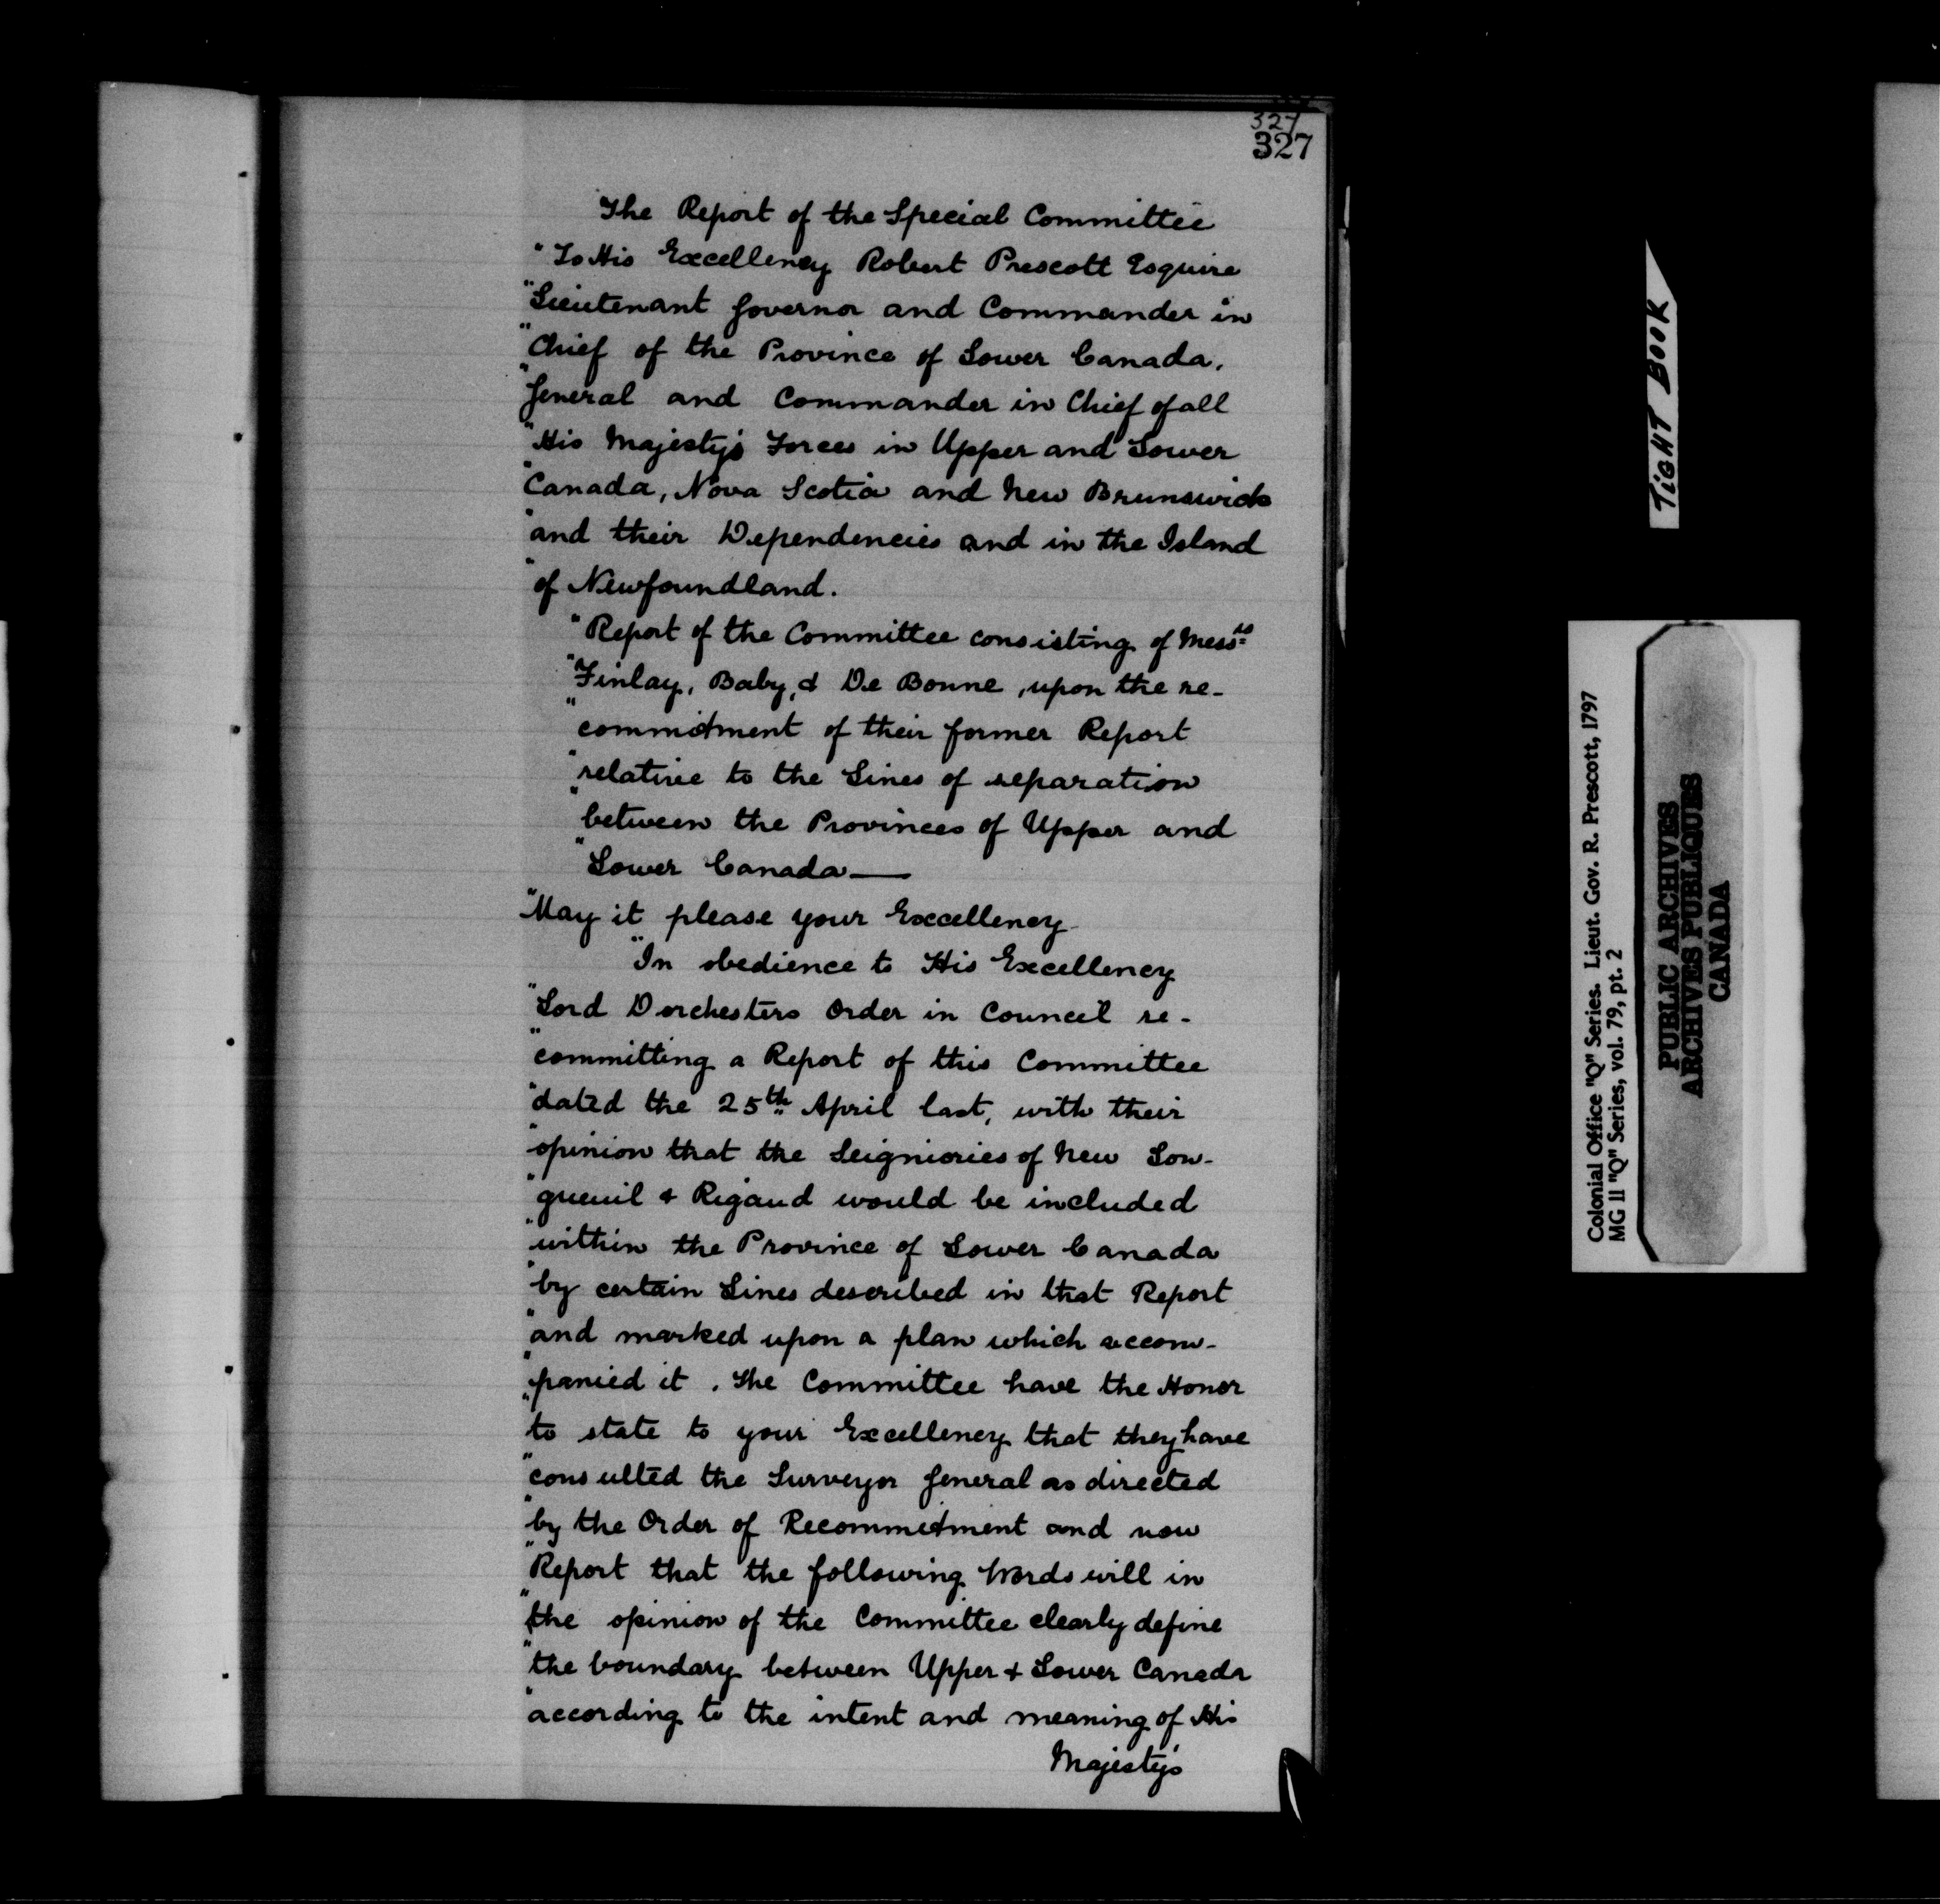 327
327
The Report of the Special Committee
"To His Excellency Robert Prescott Esquire
"Lieutenant Governor and Commander in
"Chief of the Province of Lower Canada,
"General and Commander in Chief of all
"His Majesty's Forces in Upper and Lower
"Canada, Nova Scotia and New Brunswick
"and their Dependencies and in the Island
"of Newfoundland.
"Report of the Committee consisting of Mess:rs
"Finlay, Baby, & De Bonne, upon the re-
"commitment of their former Report
"relative to the Lines of separation
"between the Provinces of Upper and
"Lower Canada—
"May it please your Excellency
"In obedience to His Excellency
"Lord Dorchesters Order in Council re-
"committing a Report of this Committee
"dated the 25th April last, with their
"opinion that the Seigniories of New Lon-
"gueuil & Rigaud would be included
"within the Province of Lower Canada
"by certain Lines described in that Report
"and marked upon a plan which accom-
"panied it. The Committee have the Honor
"to state to your Excellency that they have
"consulted the Surveyor General as directed
"by the Order of Recommitment and now
"Report that the following Words will in
"the opinion of the Committee clearly define
"the boundary between Upper & Lower Canada
"according to the intent and meaning of His
Majesty's
TIGHT BOOK
Colonial Office "Q" Series. Lieut. Gov. R. Prescott, 1797
MG 11 "Q" Series, vol. 79, pt. 2
PUBLIC ARCHIVES
ARCHIVES PUBLIQUES
CANADA